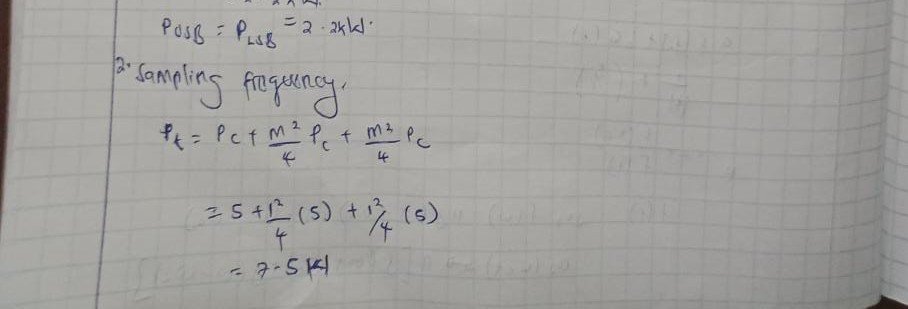 PUSB = PLSB = 2.2kW.
2. Sampling frequency.
Pt = Pc + m²/4 Pc + m²/4 Pc
= 5 + 1²/4 (5) + 1²/4 (5)
= 7.5kW